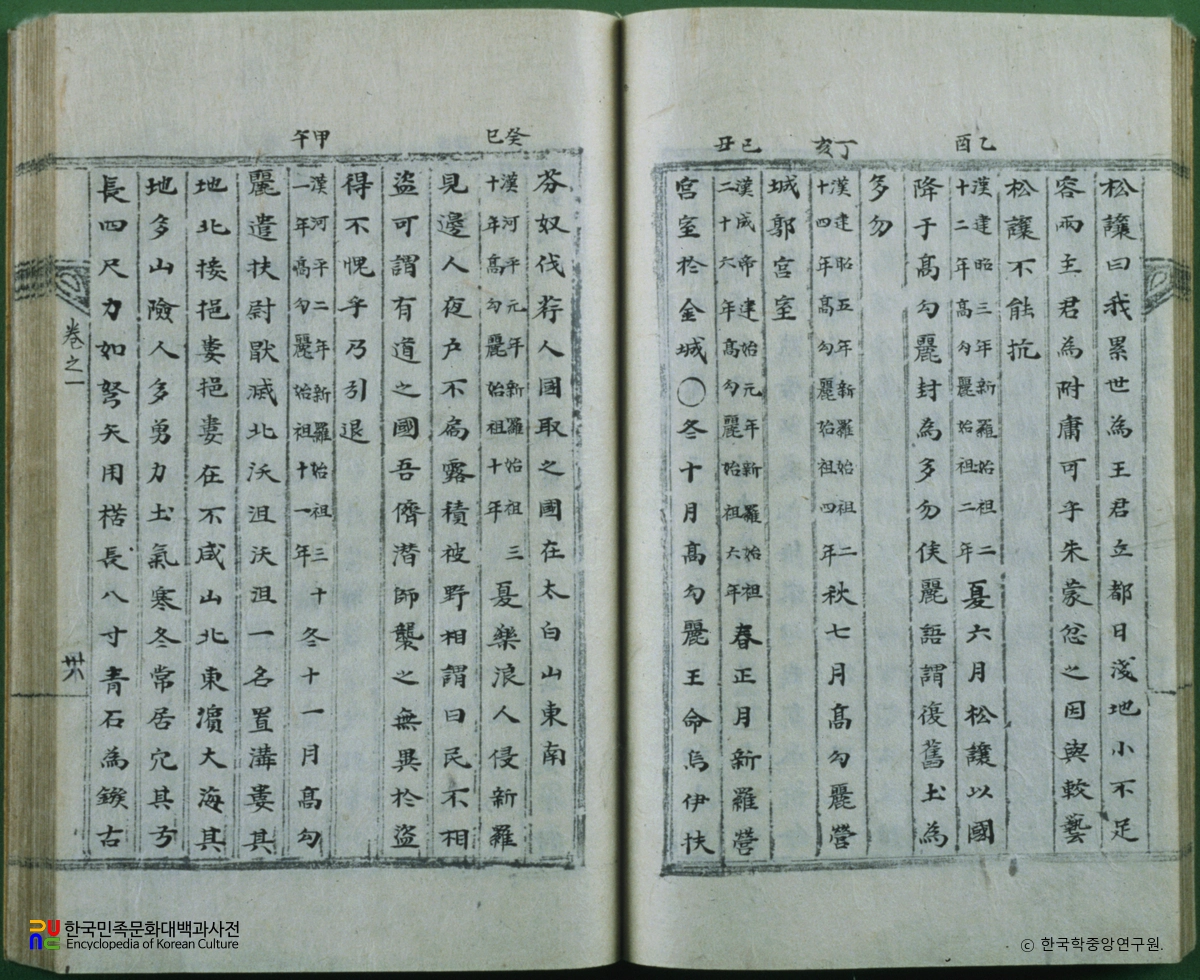 乙酉
丁亥
己丑
松讓曰我累世為王君立都日淺地小不足
容兩主君為附庸可乎朱蒙忿之因與較藝
松讓不能抗
漢建昭三年新羅始祖二
十二年高勾麗始祖二年
夏六月松讓以國
降于高勾麗封為多勿侯麗語謂復舊土為
多勿
漢建昭五年新羅始祖二
十四年高勾麗始祖四年
秋七月高勾麗營
城郭宮室
漢成帝建始元年新羅始祖
二十六年高勾麗始祖六年
春正月新羅營
宮室於金城○冬十月高勾麗王命烏伊扶
癸巳
甲午
芬奴伐荐人國取之國在太白山東南
漢河平元年新羅始祖三
十年高勾麗始祖十年
夏樂浪人侵新羅
見邊人夜户不扃露積被野相謂曰民不相
盜可謂有道之國吾儕潛師襲之無異於盜
得不愧乎乃引退
漢河平二年新羅始祖三十
一年高勾麗始祖十一年
冬十一月高勾
麗遣扶尉猒滅北沃沮沃沮一名置溝婁其
地北接挹婁挹婁在不咸山北東濱大海其
地多山險人多勇力土氣寒冬常居穴其弓
長四尺力如弩矢用楛長八寸青石為鏃古
卷之一
卄六
한국민족문화대백과사전
Encyclopedia of Korean Culture
© 한국학중앙연구원.